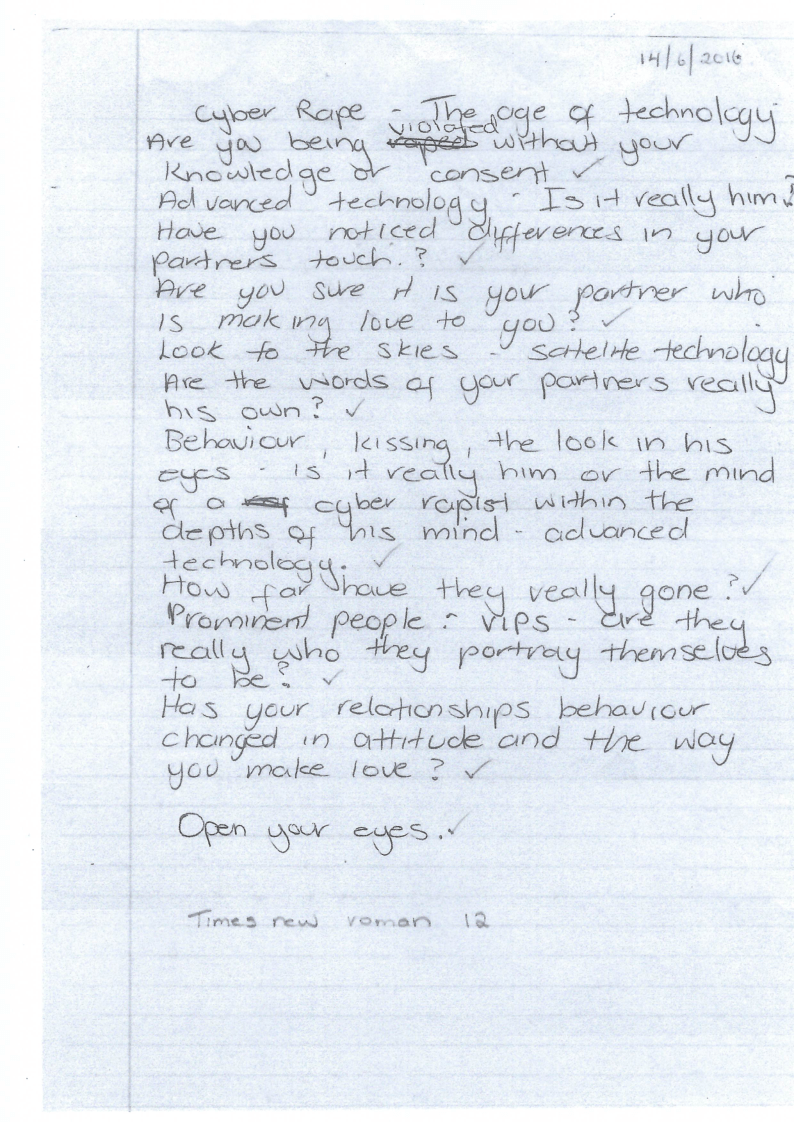 14/6/2016
Cyber Rape - The age of technology
Are you being raped violated without your
Knowledge or consent ✓
Advanced technology - Is it really him?
Have you noticed differences in your
partners touch.? ✓
Are you sure it is your partner who
is making love to you? ✓
Look to the skies - Sattelite technology
Are the words of your partners really
his own? ✓
Behaviour, kissing, the look in his
eyes - is it really him or the mind
of a cyber rapist within the
depths of his mind - advanced
technology. ✓
How far have they really gone? ✓
Prominent people - VIPs - are they
really who they portray themselves
to be? ✓
Has your relationships behaviour
changed in attitude and the way
you make love? ✓
Open your eyes. ✓
Times new roman 12